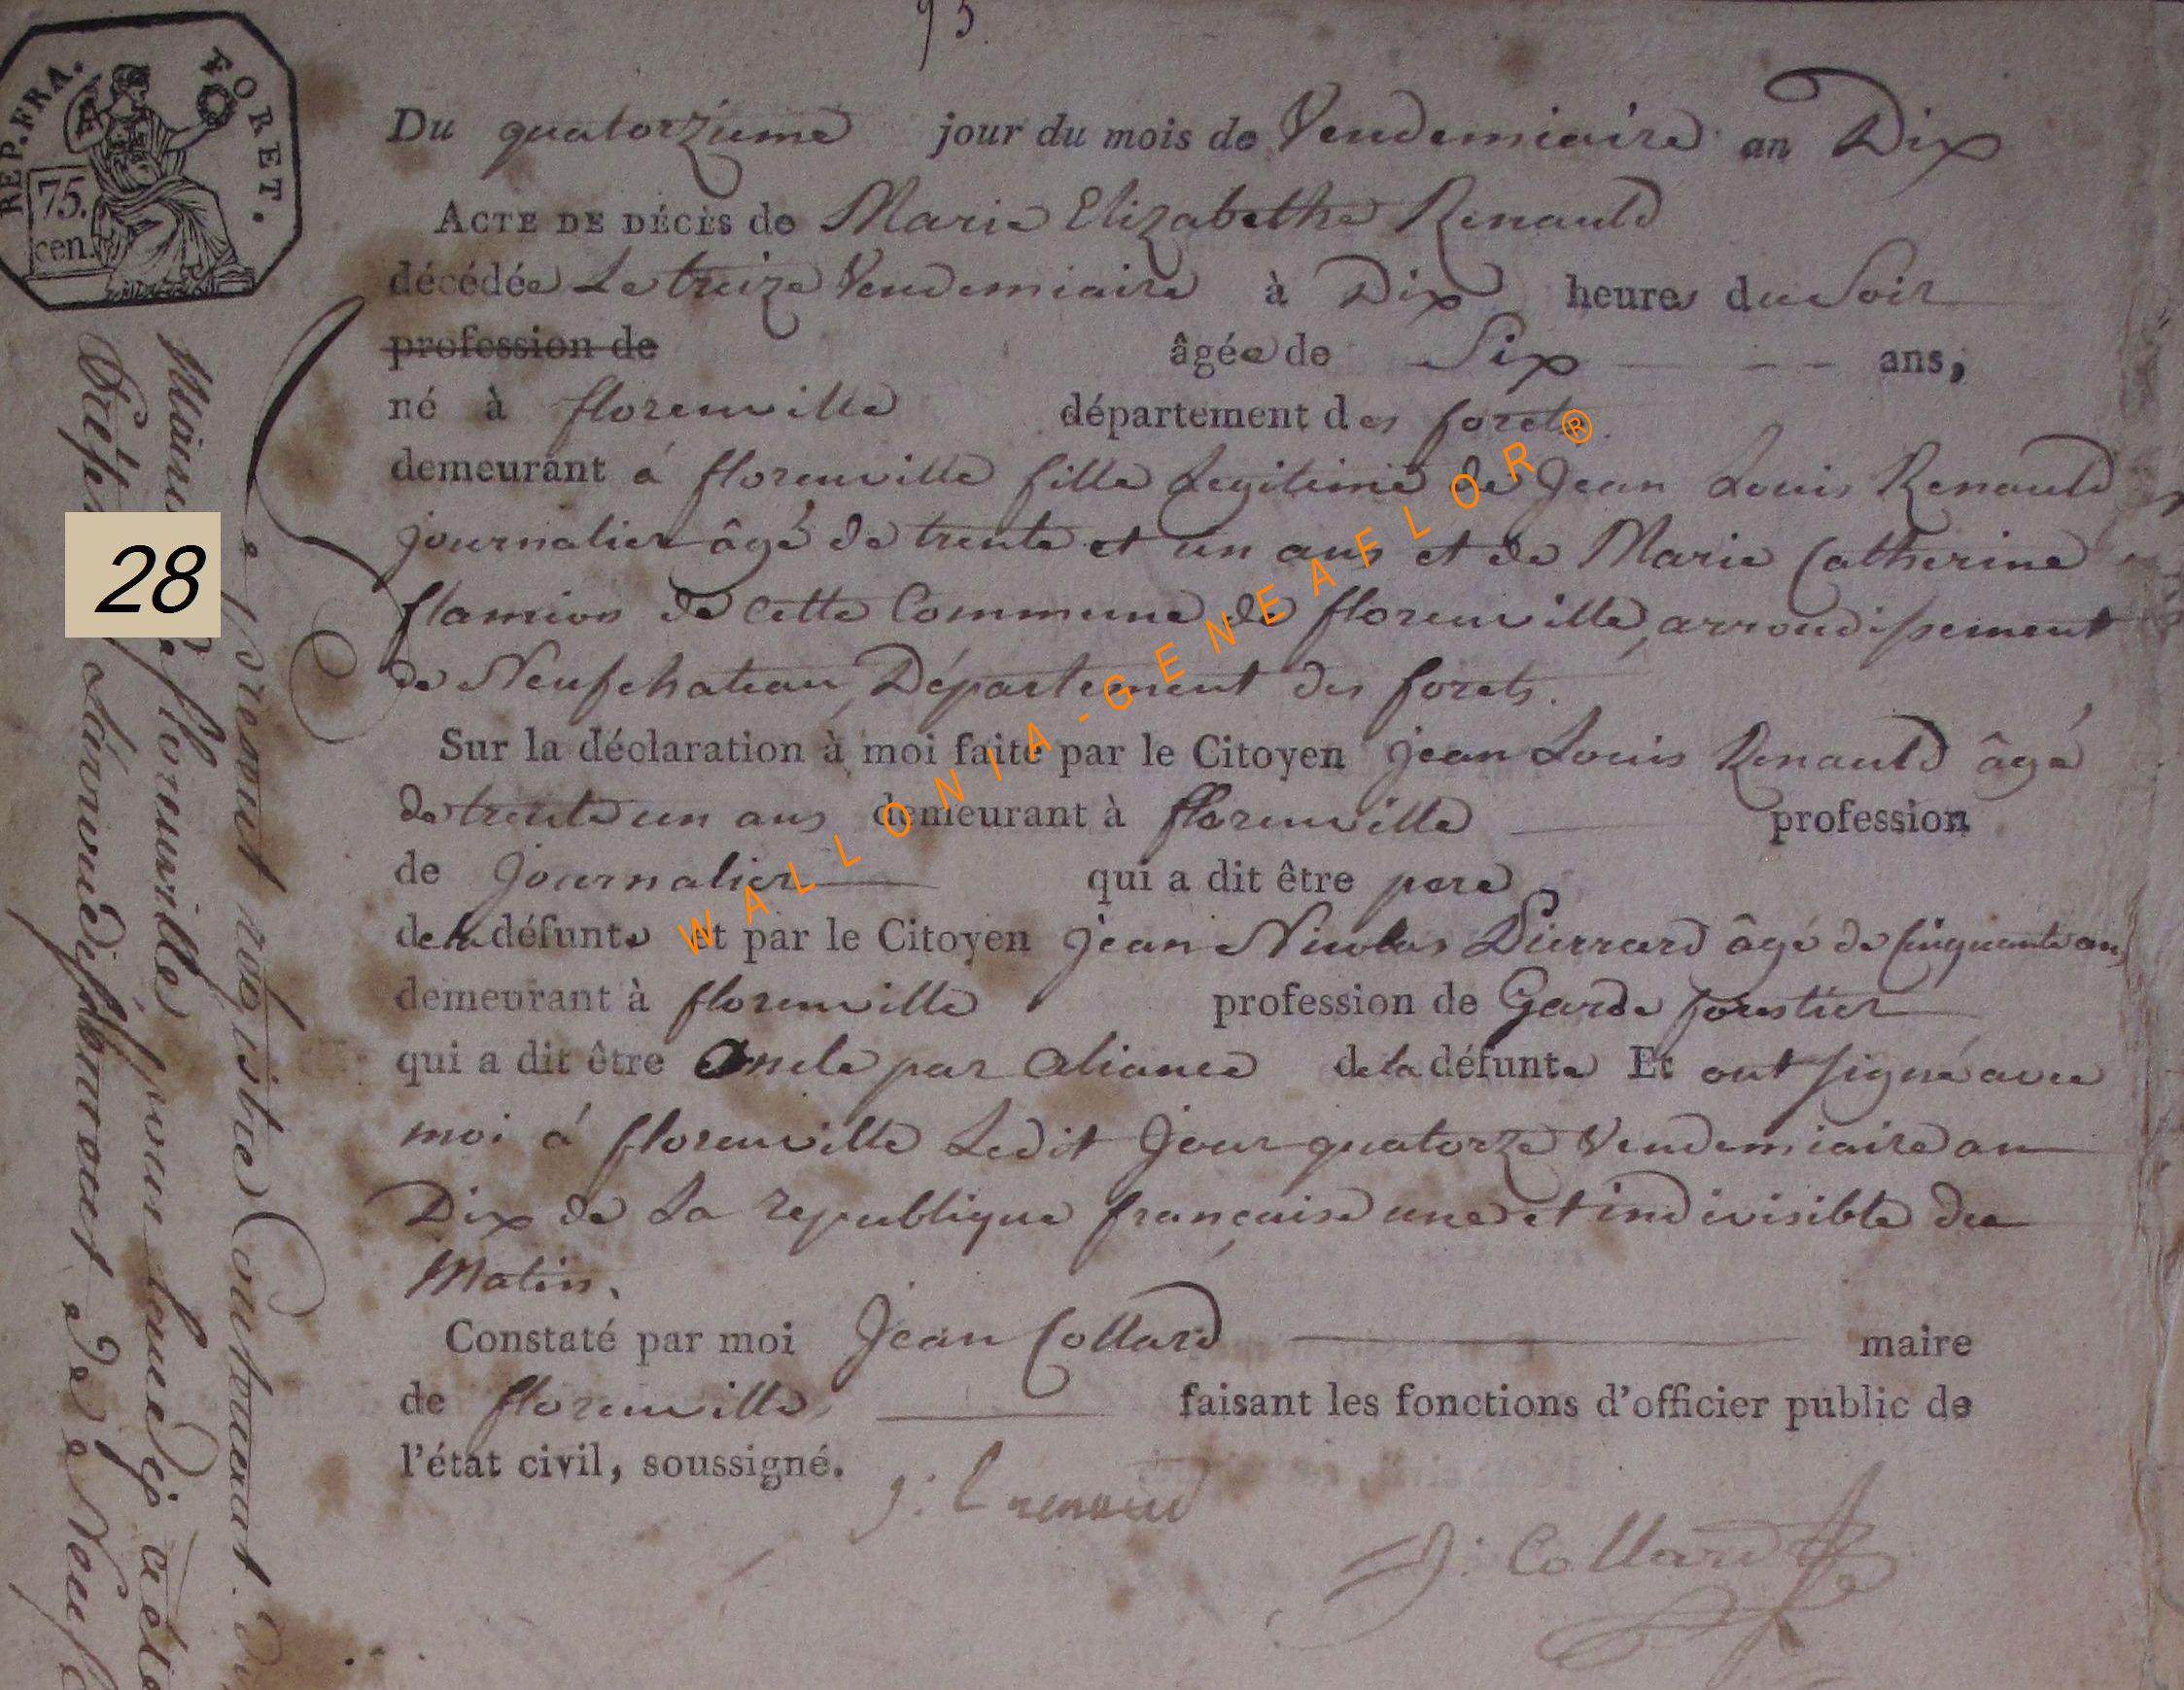 95
REP. FRA. FORET.
75.
cen.
Du quatorzieme jour du mois de Vendemiaire an Dix
ACTE DE DÉCÈS de Marie Elizabethe Renauld
décédée Le treize Vendemiaire à Dix heures du Soir
profession de âgée de Six ans,
né à florenville département des forets
demeurant á florenville fille Legitime de Jean Louis Renauld
journalier âgé de trente et un ans et de Marie Catherine
flamion de cette Commune de florenville, arrondissement
de Neufchateau, Département des forets.
Sur la déclaration à moi faite par le Citoyen jean Louis Renauld âgé
de trente un ans demeurant à florenville profession
de Journalier qui a dit être pere
de la défunte et par le Citoyen Jean Nicolas Pierrard âgé de Cinquante ans
demeurant à florenville profession de Garde forestier
qui a dit être Oncle par aliance de la défunte Et ont signé avec
moi á florenville Ledit Jour quatorze Vendemiaire an
Dix de La republique française une et indivisible du
Matin.
Constaté par moi Jean Collard maire
de florenville faisant les fonctions d'officier public de
l'état civil, soussigné.
j: l renauld
J: Collard
WALLONIA-GENEAFLOR ®
28
Le present registre Contenant
florenville, pour l'année a été
arrondissement de Neufc